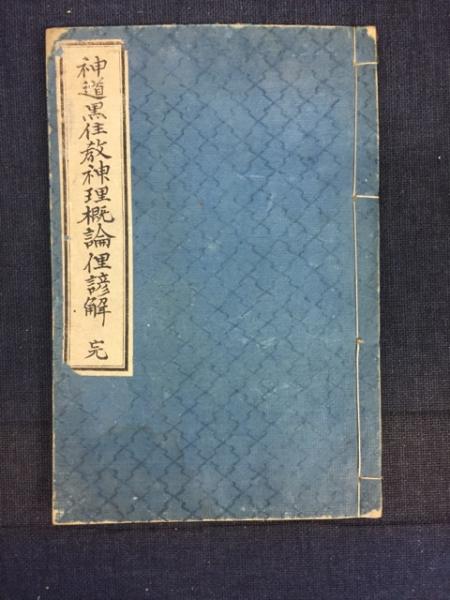 神道黒住教神理概論俚諺解 完